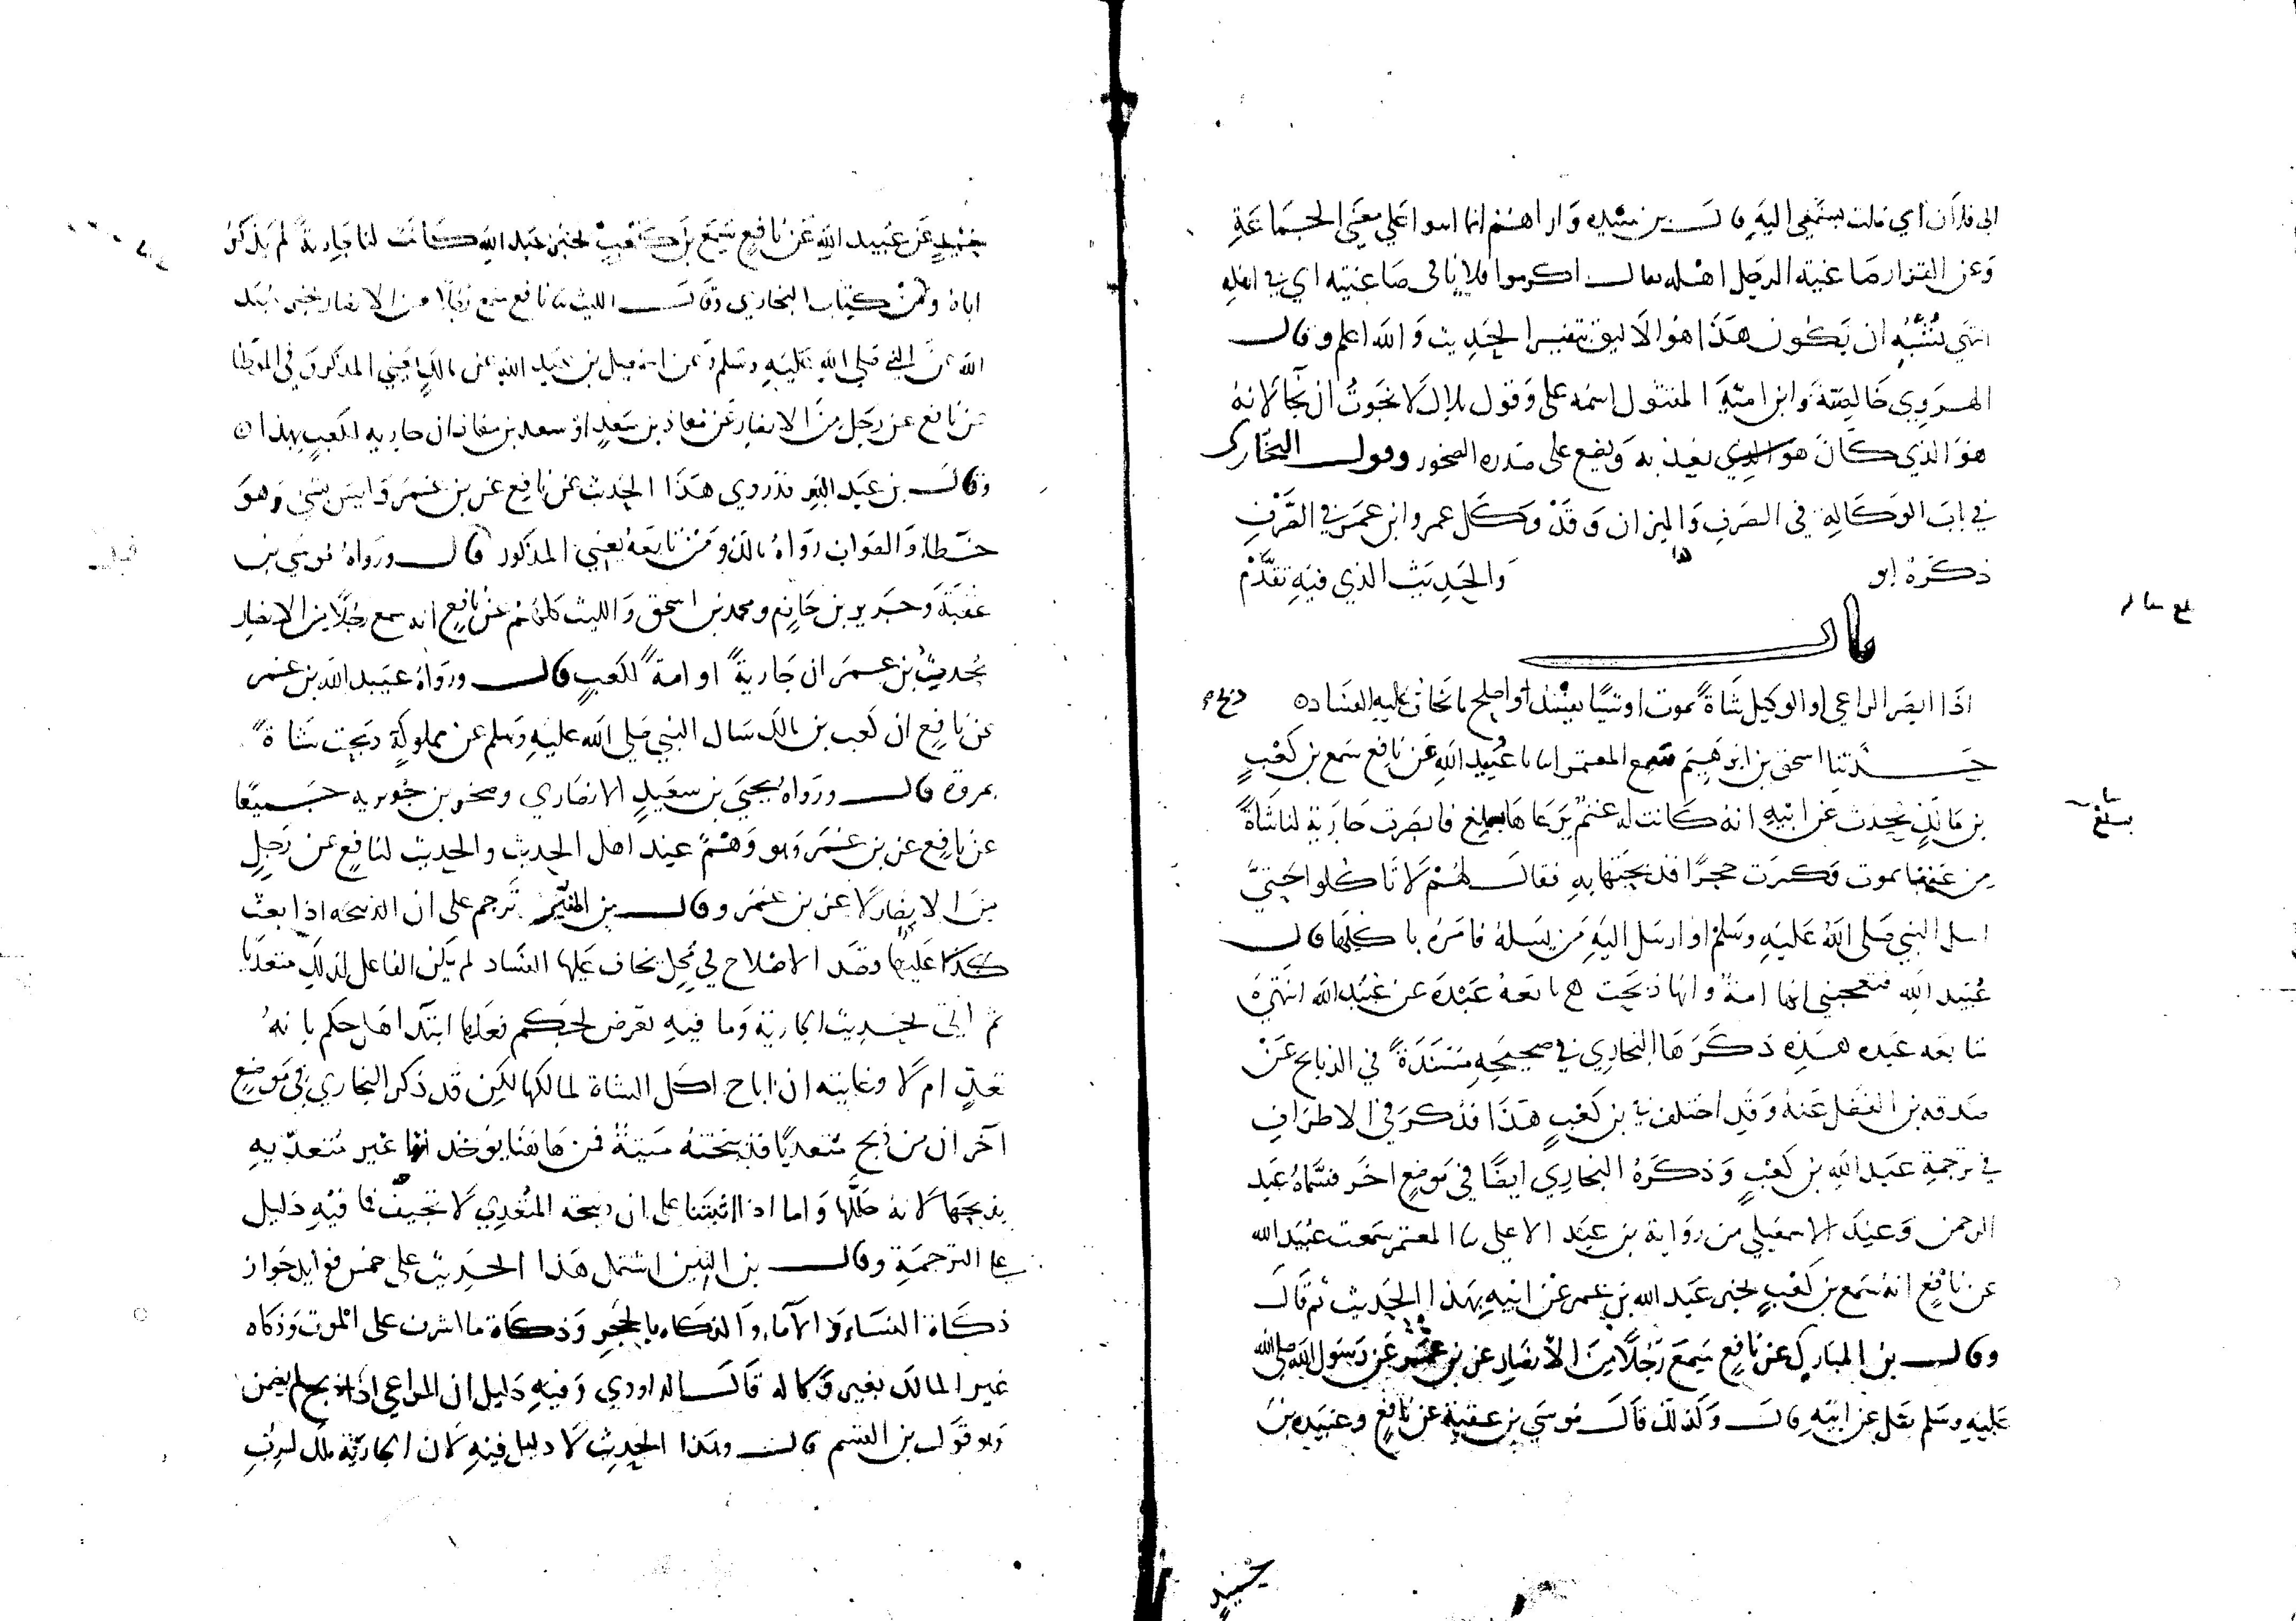 الى فلان اي فلت يستمعي اليه قال بن سيده واراهم انما انثوا على معنى الجماعة
وعن القزاز صاغية الرجل اهله يقال اكرموا فلانا في صاغيته اي في اهله
انتهى يشبه ان يكون هذا هو الاليق بتفسير الحديث والله اعلم وقال
الهروي خالصته وابن امية المقتول اسمه على وقول بلال لا نجوت ان نجا لانه
هو الذي كان هو الذي يعذبه ويضع على صدره الصخور وقول البخاري
في باب الوكالة في الصرف والميزان وقد وكل عمر وابن عمر في الصرف
ذكره ابو هذا والحديث الذي فيه تقدم
باب
اذا ابصر الراعي او الوكيل شاة تموت او شيئا يفسد او اصلح ما يخاف عليه الفساد ه
حدثنا اسحق بن ابرهيم سمع المعتمر انبانا عبيد الله عن نافع سمع بن كعب
بن مالك يحدث عن ابيه انه كانت له غنم يرعاها بسلع فابصرت جارية لنا شاة
من غنمنا تموت فكسرت حجرا فذبحتها به فقال لهم لا تاكلوا حتى
اسل النبي صلى الله عليه وسلم او ارسل اليه من يسله فامره باكلها قال
عبيد الله فتعجبني انها امة وانها ذبحت ه تابعه عبدة عن عبيد الله انتهى
متابعه عبده هذه ذكرها البخاري في صحيحه مسندة في الذبايح عن
صدقه بن الفضل عنه وقد اختلف في بن كعب هذا فذكر في الاطراف
في ترجمة عبد الله بن كعب وذكره البخاري ايضا في موضع اخر فسماه عبد
الرحمن وعند الاسمعيلي من رواية بن عبد الاعلى ثنا المعتمر سمعت عبيد الله
عن نافع انه سمع بن كعب يخبر عبد الله بن عمر عن ابيه بهذا الحديث ثم قال
وقال بن المبارك عن نافع سمع رجلا من الانصار عن بن عمر عن رسول الله صلى الله
عليه وسلم يقل عن ابيه قال وكذلك قال موسي بن عقبة عن نافع وعبيده بن
حميد
حميد عن عبيد الله عن نافع سمع بن كعب يخبر عبد الله كانت لنا جارية لم يذكر
اباه وفي كتاب البخاري وقال الليث ثنا نافع سمع رجلا من الانصار يخبر عبد
الله عن النبي صلى الله عليه وسلم وعن اسمعيل بن عبد الله عن مالك يعني المذكور في الموطا
عن نافع عن رجل من الانصار عن معاذ بن سعد او سعد بن معاذ ان جارية لكعب بهذا ه
وقال بن عبد البر قد روي هذا الحديث عن نافع عن بن عمر وليس بشي وهو
خطا والصواب رواة مالك ومن تابعه يعني المذكور قال ورواه موسي بن
عقبة وجرير بن حازم ومحمد بن اسحق والليث كلهم عن نافع انه سمع رجلا من الانصار
يحدث بن عمر ان جارية او امة لكعب قال ورواه عبيد الله بن عمر
عن نافع ان كعب بن مالك سال النبي صلى الله عليه وسلم عن مملوكة ذبحت شاة
بمروة قال ورواه يحيى بن سعيد الانصاري وصخر بن جويريه جميعا
عن نافع عن بن عمر وهو وهم عند اهل الحديث والحديث لنافع عن رجل
من الانصار لا عن بن عمر وقال بن المنير ترجم على ان الذبيحه اذا بعث
كذا عليها وقصد الاصلاح في محل يخاف عليها الفساد لم يكن الفاعل لذلك متعديا
ثم اتى بحديث الجارية وما فيه تعرض لحكم فعلها ابتداء هل حكم بانه
تعد ام لا وغايته ان اباح اكل الشاة لمالكها لكن قد ذكر البخاري في موضع
آخر ان من ذبح متعديا فذبيحته ميتة فمن هاهنا يوخذ انها غير متعديه
بذبحها لانه حللها واما اذا اثبتنا على ان ذبيحة المتعدي لا تجيف فما فيه دليل
على الترجمة وقال بن التين اشتمل هذا الحديث على خمس فوايد جواز
ذكاة النساء والآماء والذكاه بالحجر وذكاة ما اشرف على الموت وذكاه
غير المالك بغير وكاله قال الداودي وفيه دليل ان الراعي اذا ذبح لم يضمن
وهو قول بن القسم قال وهذا الحديث لا دليل فيه لان الجارية ملك لرب